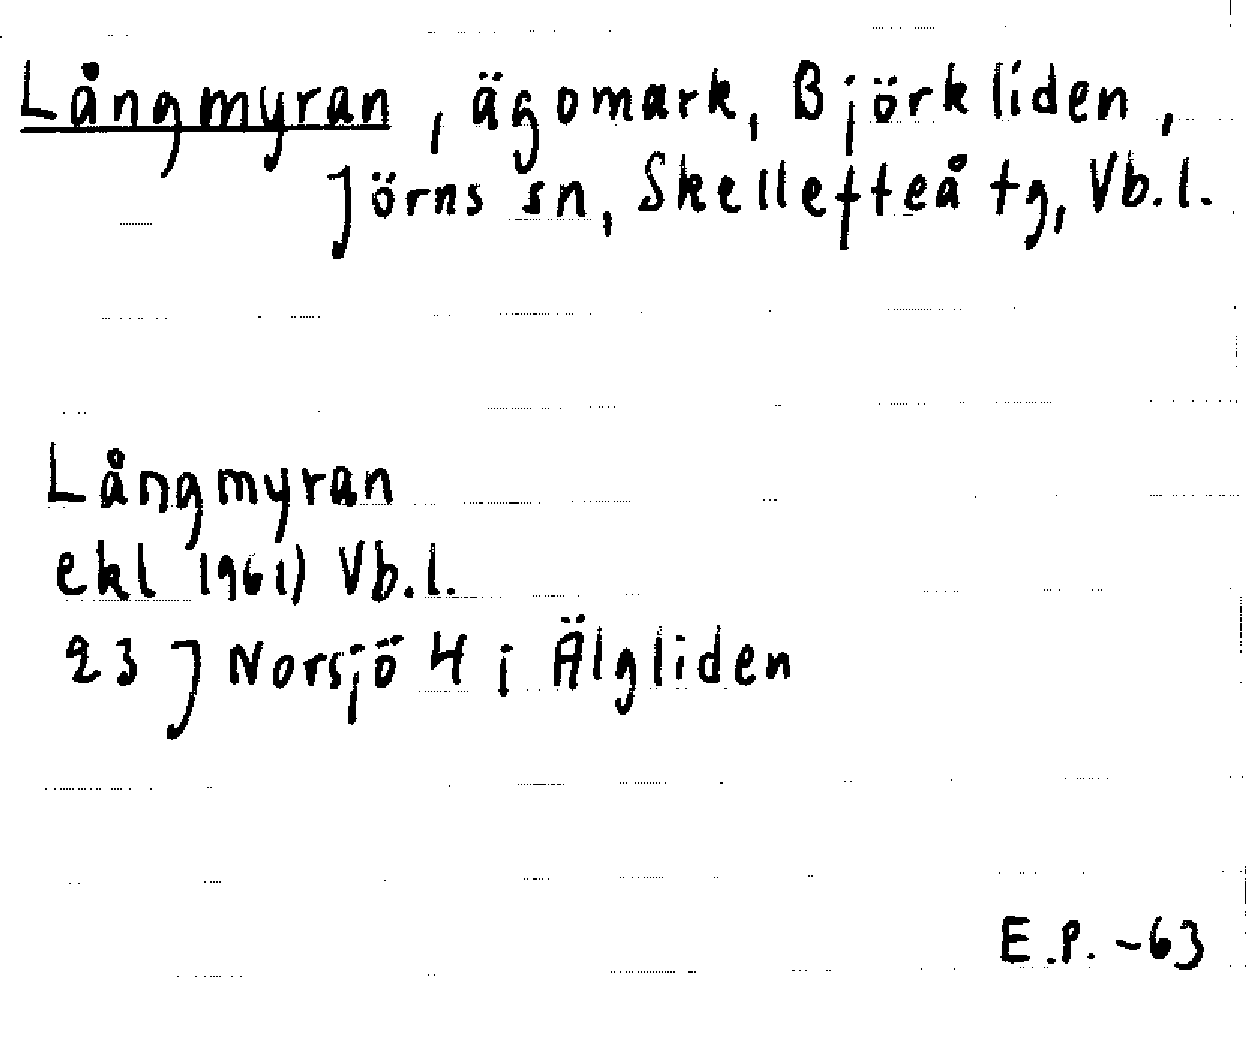 Långmyran, ägomark, Björkliden,
Jörns sn, Skellefteå tg, Vb.l.
Långmyran
ekl 1961) Vb.l.
23 J Norsjö 4 i Älgliden
E.P. -63